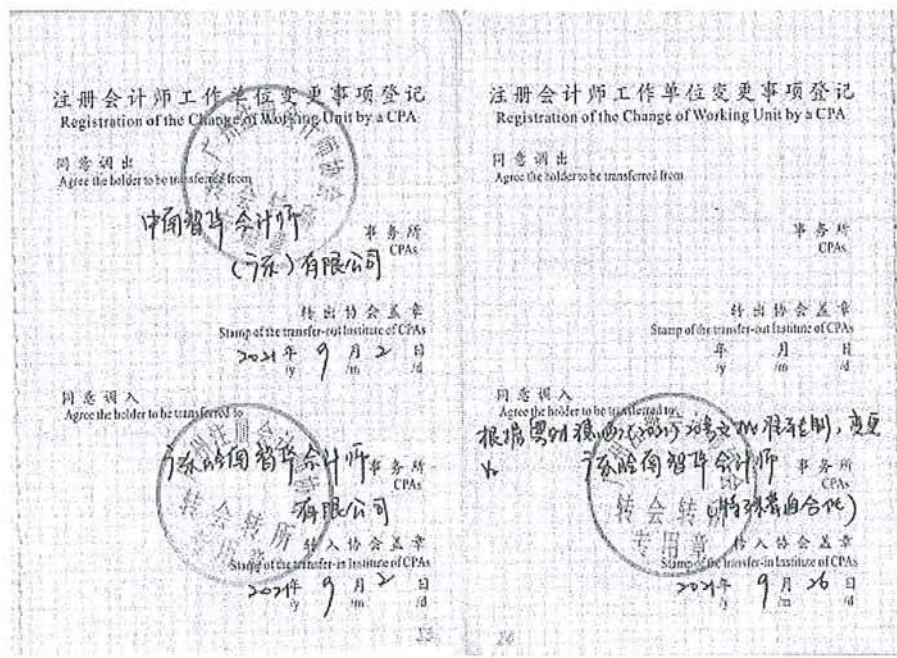 注册会计师工作单位变更事项登记
Registration of the Change of Working Unit by a CPA
同意调出
Agree the holder to be transferred from
中南智华会计师
事务所
CPAs
(广东)有限公司
转出协会盖章
Stamp of the transfer-out Institute of CPAs
2021年 9月 2日
/y /m /d
同意调入
Agree the holder to be transferred to
会计师 事务所
CPAs
有限公司
转会转所
专用章
转入协会盖章
Stamp of the transfer-in Institute of CPAs
2021年 9月 2日
/y /m /d
注册会计师工作单位变更事项登记
Registration of the Change of Working Unit by a CPA
同意调出
Agree the holder to be transferred from
事务所
CPAs
转出协会盖章
Stamp of the transfer-out Institute of CPAs
年 月 日
/y /m /d
同意调入
Agree the holder to be transferred to
根据 变更
为 智华会计师 事务所
CPAs
转会转所
(特殊普通合伙)
专用章
转入协会盖章
Stamp of the transfer-in Institute of CPAs
2021年 9月 26日
/y /m /d